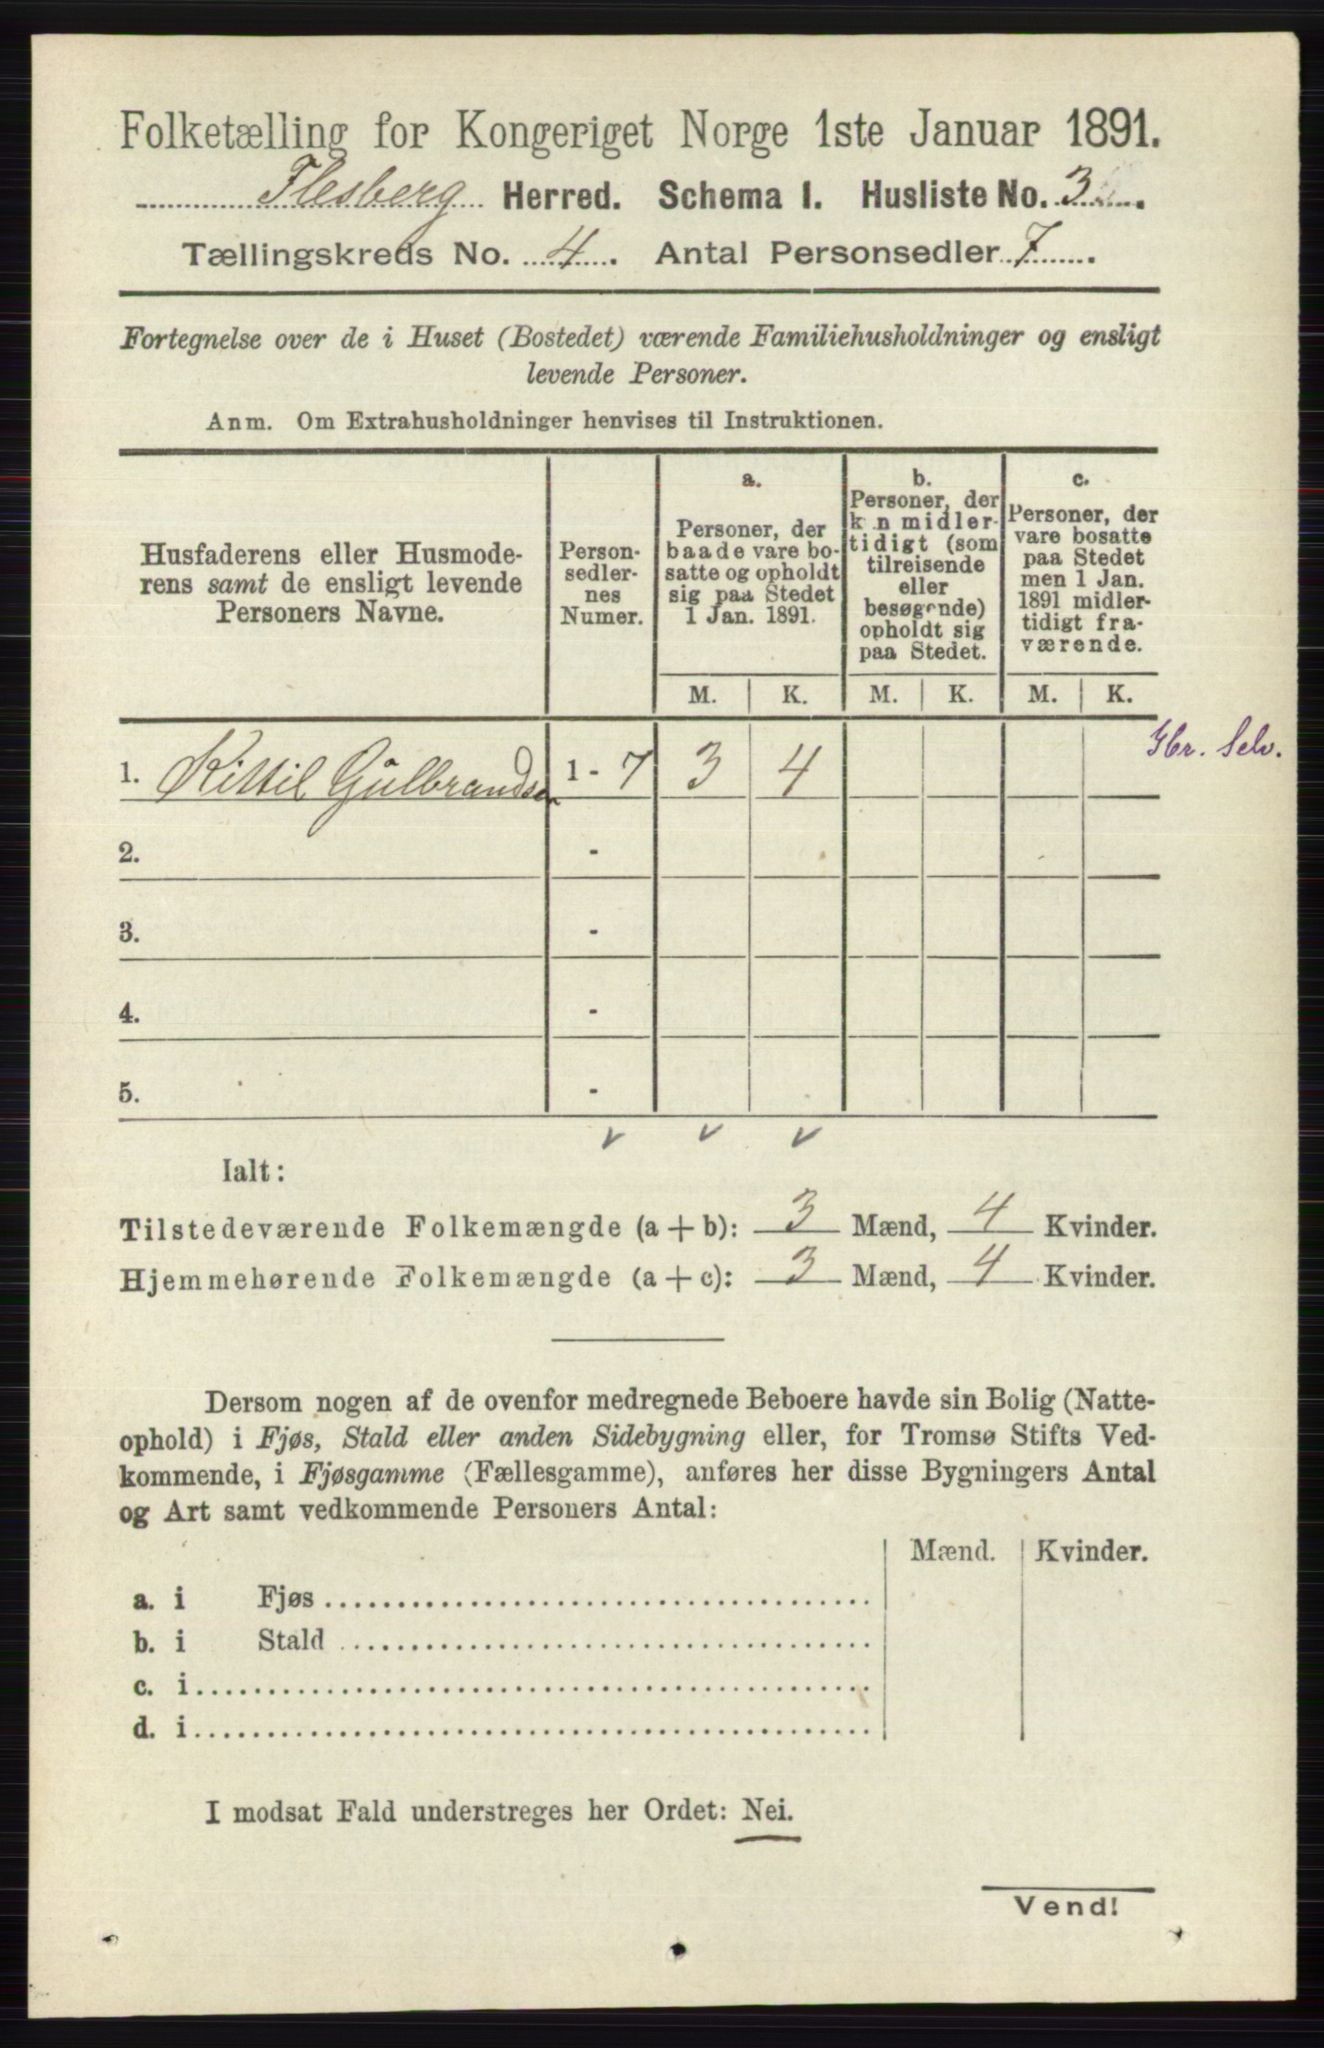 Folketælling for Kongeriget Norge 1ste Januar 1891.
Flesberg Herred. Schema I. Husliste No. 3
Tællingskreds No. 4. Antal Personsedler 7.
Fortegnelse over de i Huset (Bostedet) værende Familiehusholdninger og ensligt
levende Personer.
Anm. Om Extrahusholdninger henvises til Instruktionen.
Husfaderens eller Husmode-
rens samt de ensligt levende
Personers Navne.
Person-
sedler-
nes
Numer.
a.
Personer, der
baade vare bo-
satte og opholdt
sig paa Stedet
1 Jan. 1891.
b.
Personer, der
kun midler-
tidigt (som
tilreisende
eller
besøgende)
opholdt sig
paa Stedet.
c.
Personer, der
vare bosatte
paa Stedet
men 1 Jan.
1891 midler-
tidigt fra-
værende.
M. K. M. K. M. K.
1. Kittil Gulbrandsen 1 - 7 3 4 Gbr. Selv.
2. -
3. -
4. -
5. -
Ialt:
Tilstedeværende Folkemængde (a + b): 3 Mænd, 4 Kvinder.
Hjemmehørende Folkemængde (a + c): 3 Mænd, 4 Kvinder.
Dersom nogen af de ovenfor medregnede Beboere havde sin Bolig (Natte-
ophold) i Fjøs, Stald eller anden Sidebygning eller, for Tromsø Stifts Ved-
kommende, i Fjøsgamme (Fællesgamme), anføres her disse Bygningers Antal
og Art samt vedkommende Personers Antal:
Mænd. Kvinder.
a. i Fjøs
b. i Stald
c. i
d. i
I modsat Fald understreges her Ordet: Nei.
Vend!